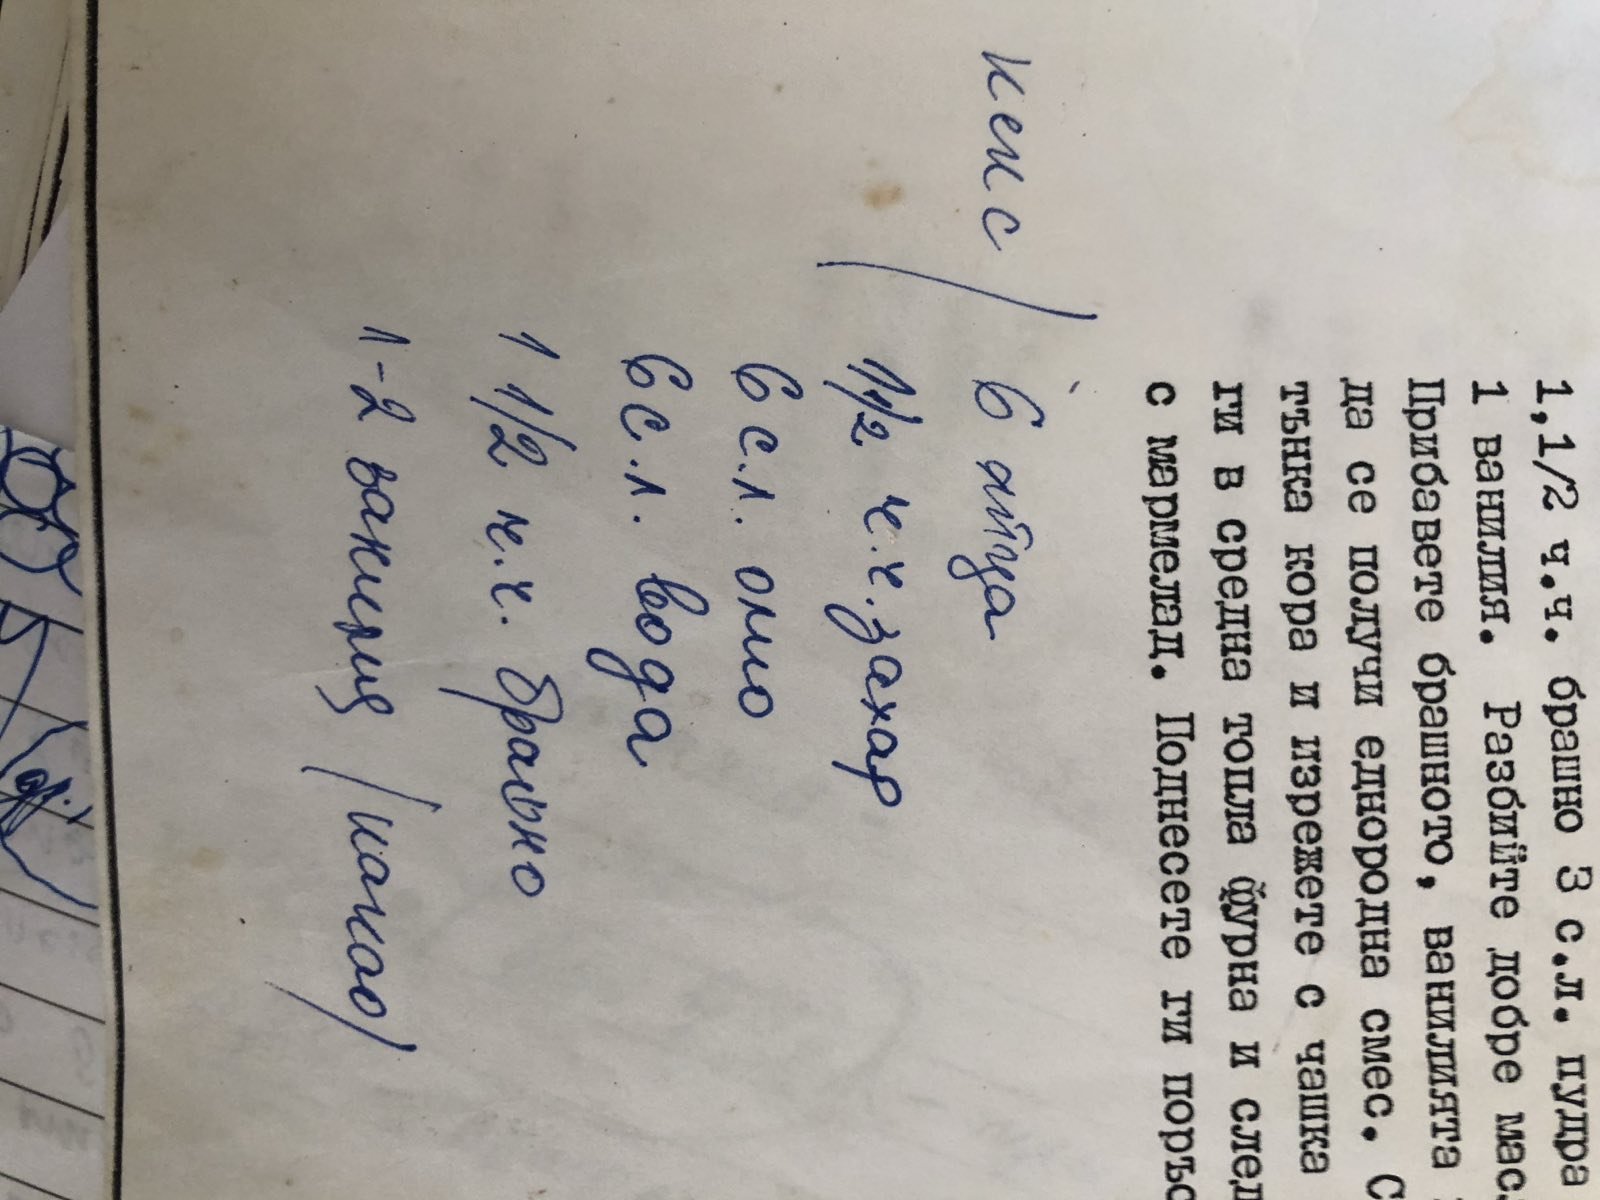 1,1/2 ч.ч. брашно 3 с.л. пудра
1 ванилия. Разбийте добре мас
Прибавете брашното, ванилията
да се получи еднородна смес. С
тънка кора и изрежете с чашка
ги в средна топла фурна и след
с мармелад. Поднесете ги поръс
кекс / 6 яйца
1 1/2 ч.ч. захар
6 с.л. олио
6 с.л. вода
1 1/2 ч.ч. брашно
1-2 ванилия /какао/